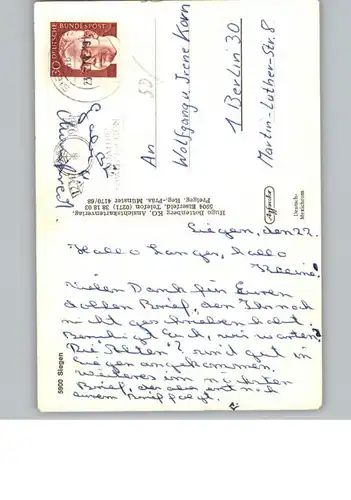 Siegen, den 22.
Hallo Langer, hallo
Kleine!
Vielen Dank für Euren
tollen Brief, den Ihr noch
nicht geschrieben habt.
Beruhigt Euch, wir warten.
Die "Alten" sind gut in
Siegen angekommen.
Weiteres im nächsten
Brief, der aber erst nach
eurem Brief folgt.
5900 Siegen
Hugo Rottenberg KG, Ansichtskartenverlag,
5904 Eiserfeld, Telefon (0271) 38 38 03
Freigeg. Reg.-Präs. Münster 4170/68
Deutsch-
Mexichrom
30 DEUTSCHE BUNDESPOST
An
Wolfgang u. Irene Korn
1 Berlin 30
Martin-Luther-Str. 8